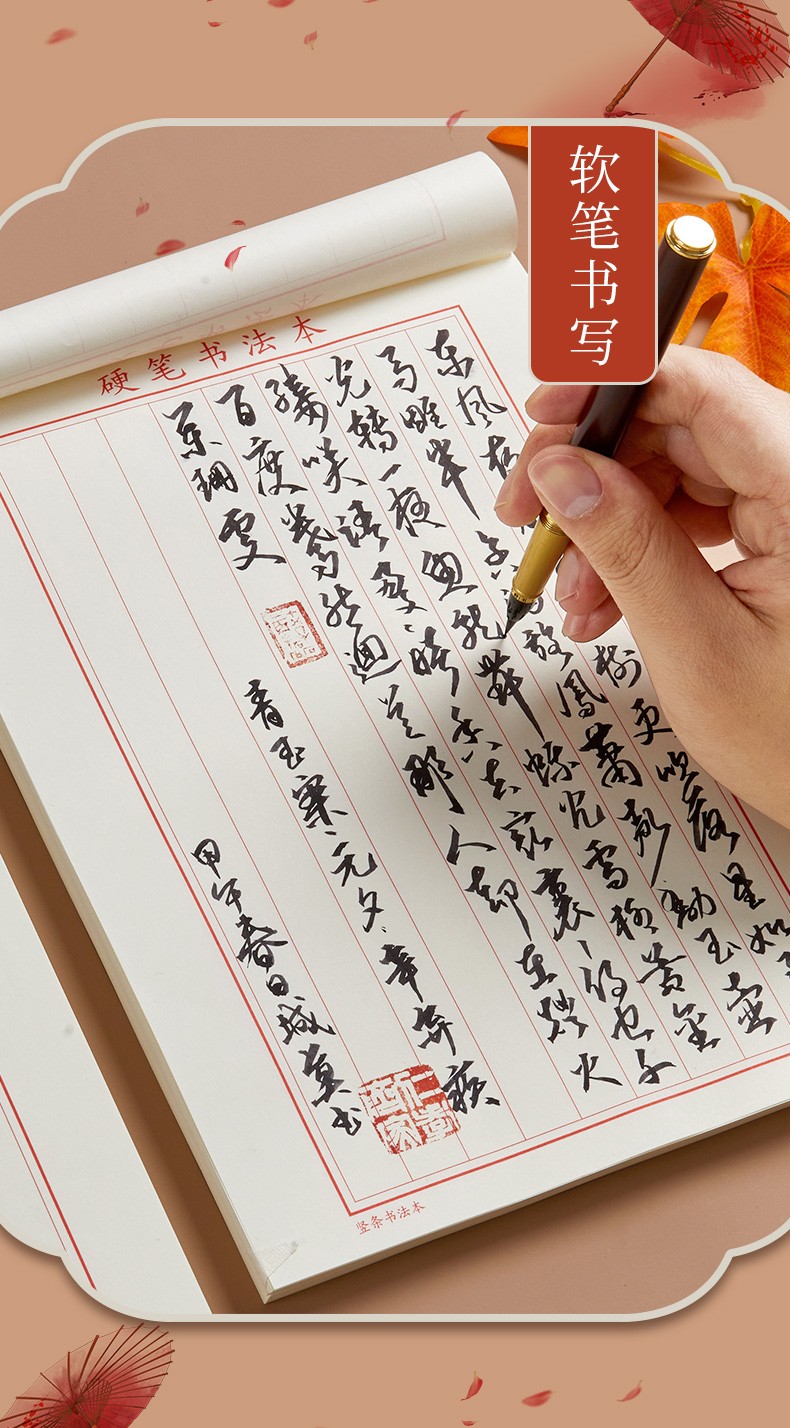 软笔书写
硬笔书法本
东风夜
树更吹落星如
马雕车香
凤箫声动玉壶
光转一夜鱼龙舞蛾儿雪柳黄金
缕笑语盈、暗香去众里、
百度蓦然回首那人却在灯火
阑珊处
青玉案、元夕、辛弃疾
甲午春日城
竖条书法本